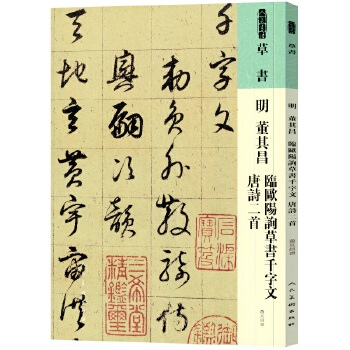 草書
明 董其昌
臨歐陽詢草書千字文
唐詩二首
千字文
勅員外散騎侍
興嗣次韻
天地玄黃宇宙洪
石渠寶笈
三希堂精鑑璽
草書
明 董其昌 臨歐陽詢草書千字文 唐詩二首
人民美術出版社